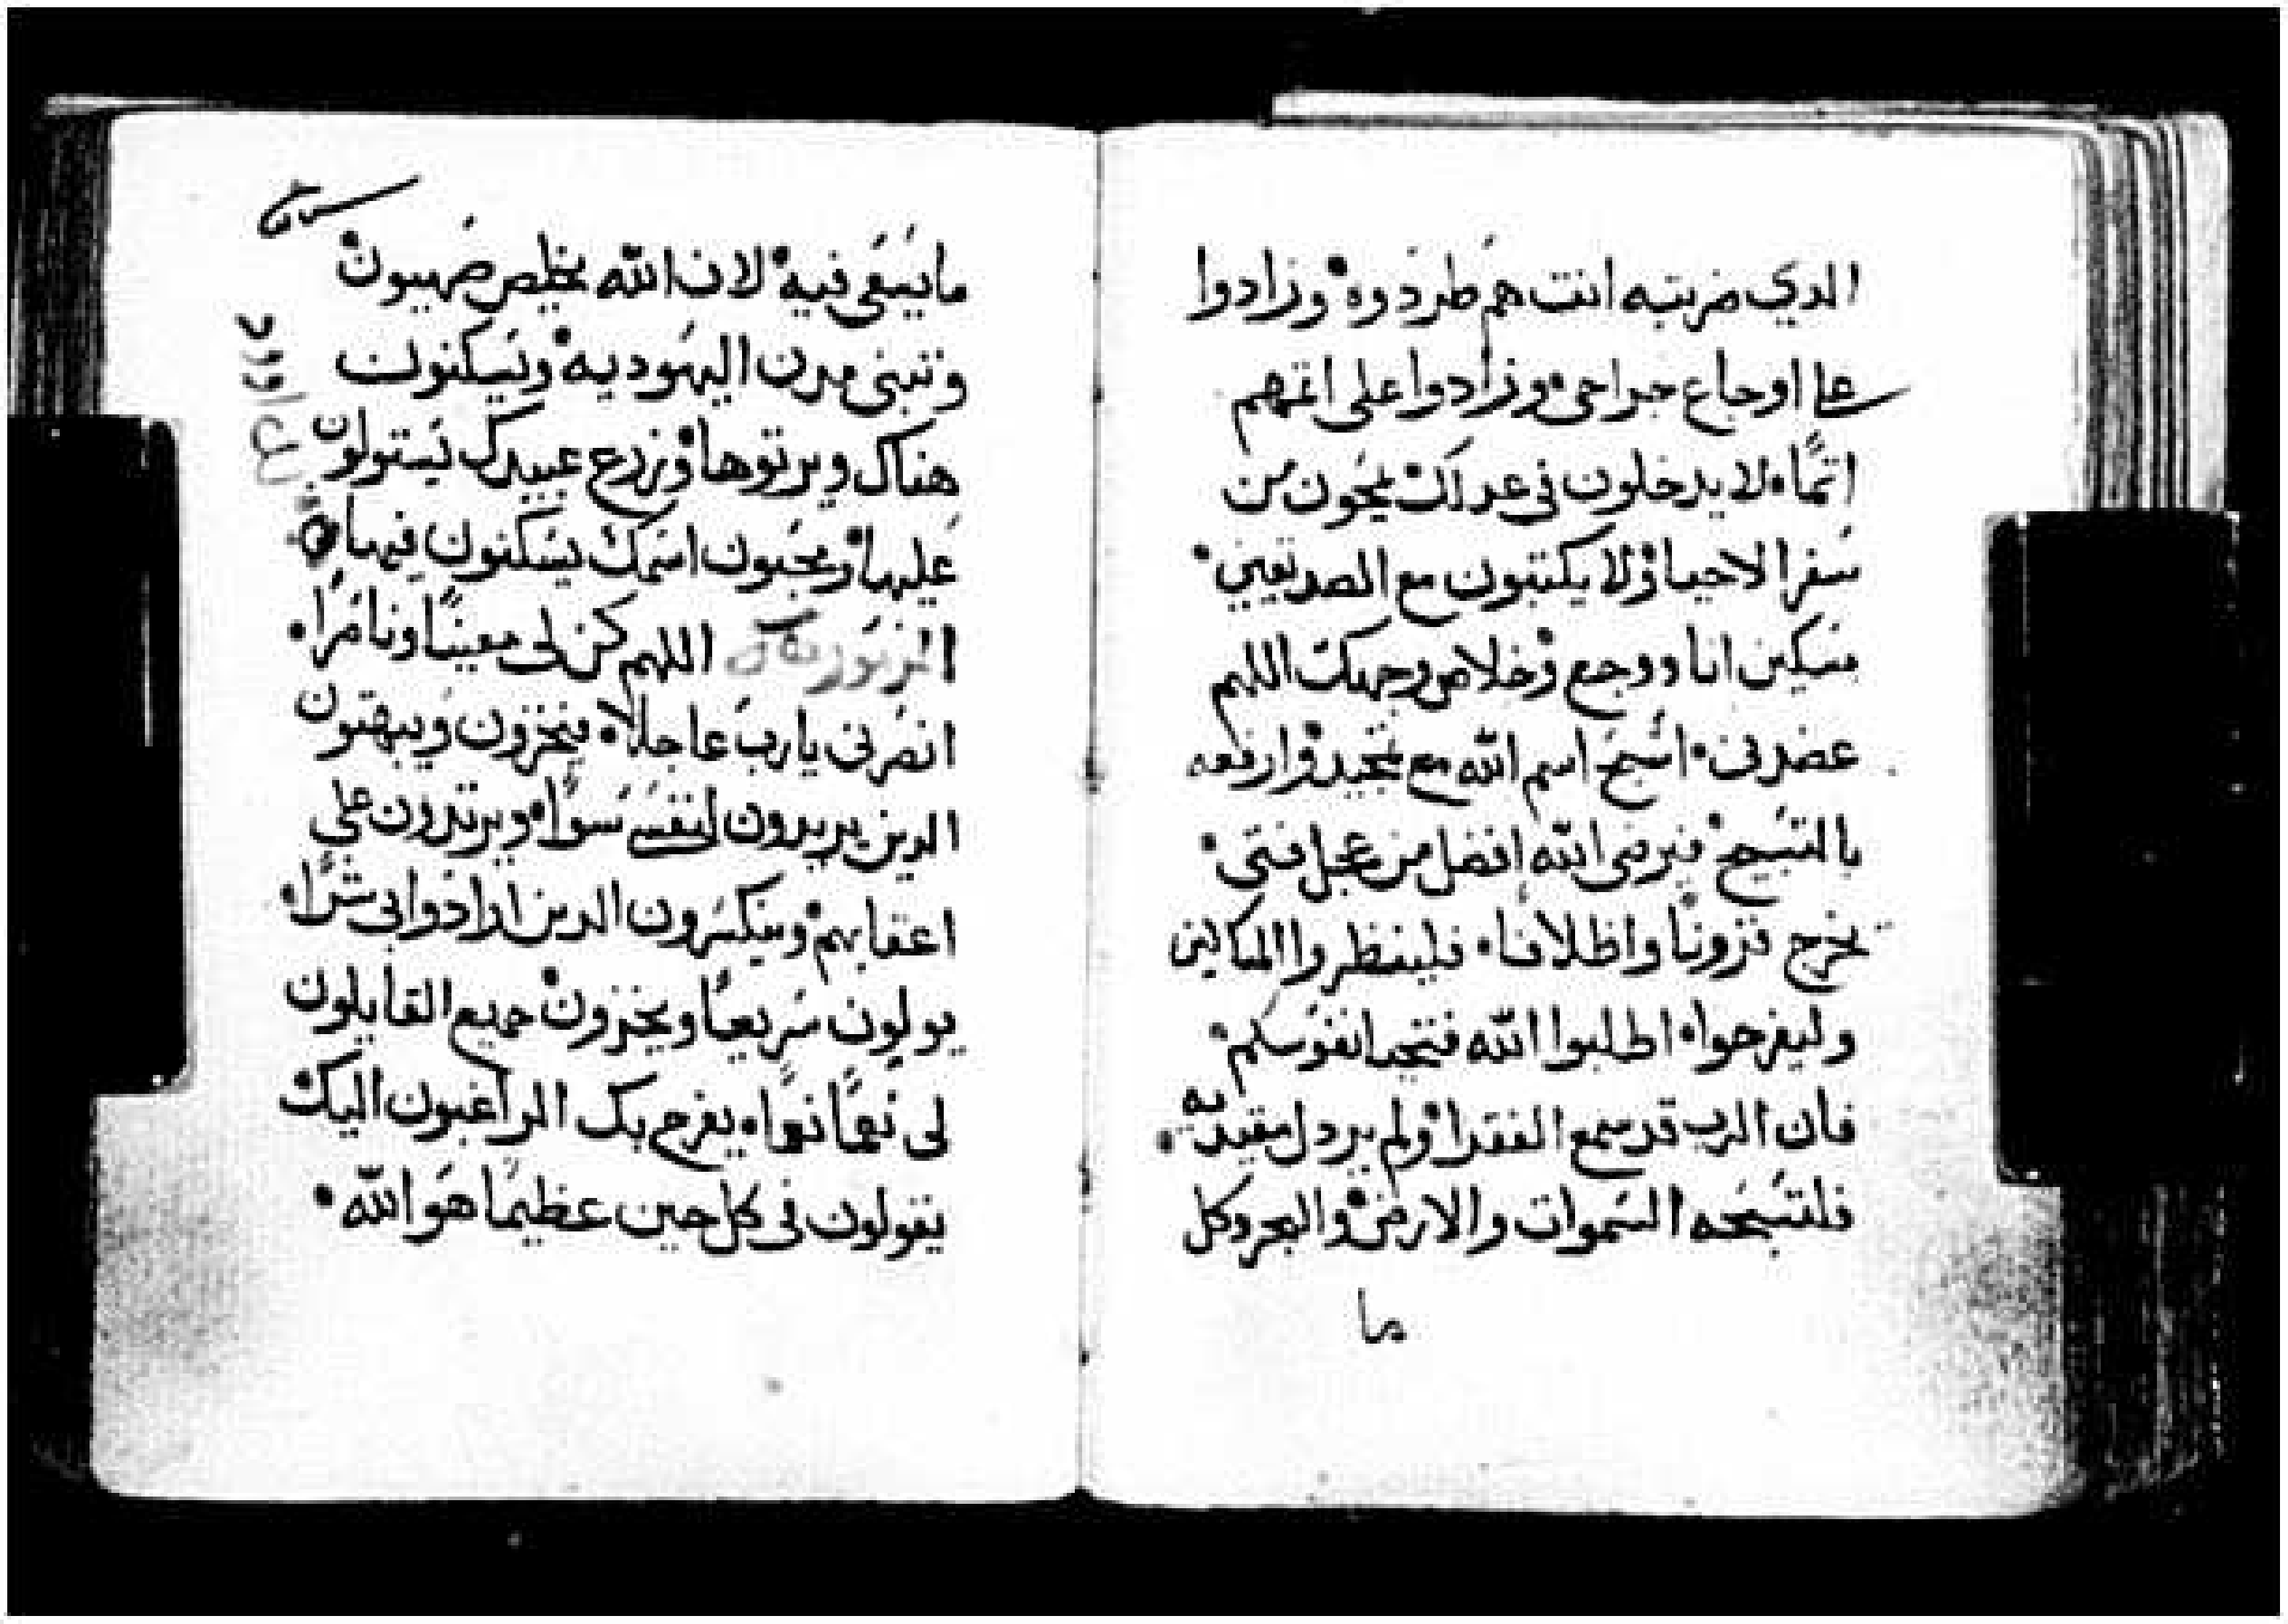 الدي ضربته انت هم طردوه وزادوا
علي اوجاع جراحي وزادوا على اثمهم
اثمًا لا يدخلون في عدلك يمحون من
سفر الاحيا ولا يكتبون مع الصديقين
مسكين انا ووجع وخلاص وجهك اللهم
عضدني اسبح اسم الله مع تمجيد وارفعه
بالتسبيح فيرضي الله افضل من عجل فتى
يخرج قرونًا واظلافًا فلينظروا المساكين
وليفرحوا اطلبوا الله فتحيا نفوسكم
فان الرب قد سمع الفقرا ولم يردل مقيديه
فلتسبحه السموات والارض والبحر وكل
ما
ما يسعى فيه لان الله يخلص صهيون
وتبنى مدن اليهوديه ويسكنون
هناك ويرتوها وزرع عبيدك يستولون
عليها ومحبون اسمك يسكنون فيها
المزمور اللهم كن لي معينًا وناصرًا
انصرني يا رب عاجلا فيخزون ويبهتون
الدين يريدون لنفسي سوًا ويرتدون على
اعقابهم وينكسرون الدين ارادوا بي شرًا
يولون سريعًا ويخزون جميع القايلون
لي نعمًا نعمًا يفرح بك الراغبون اليك
يقولون في كل حين عظيمًا هو الله
لداوود